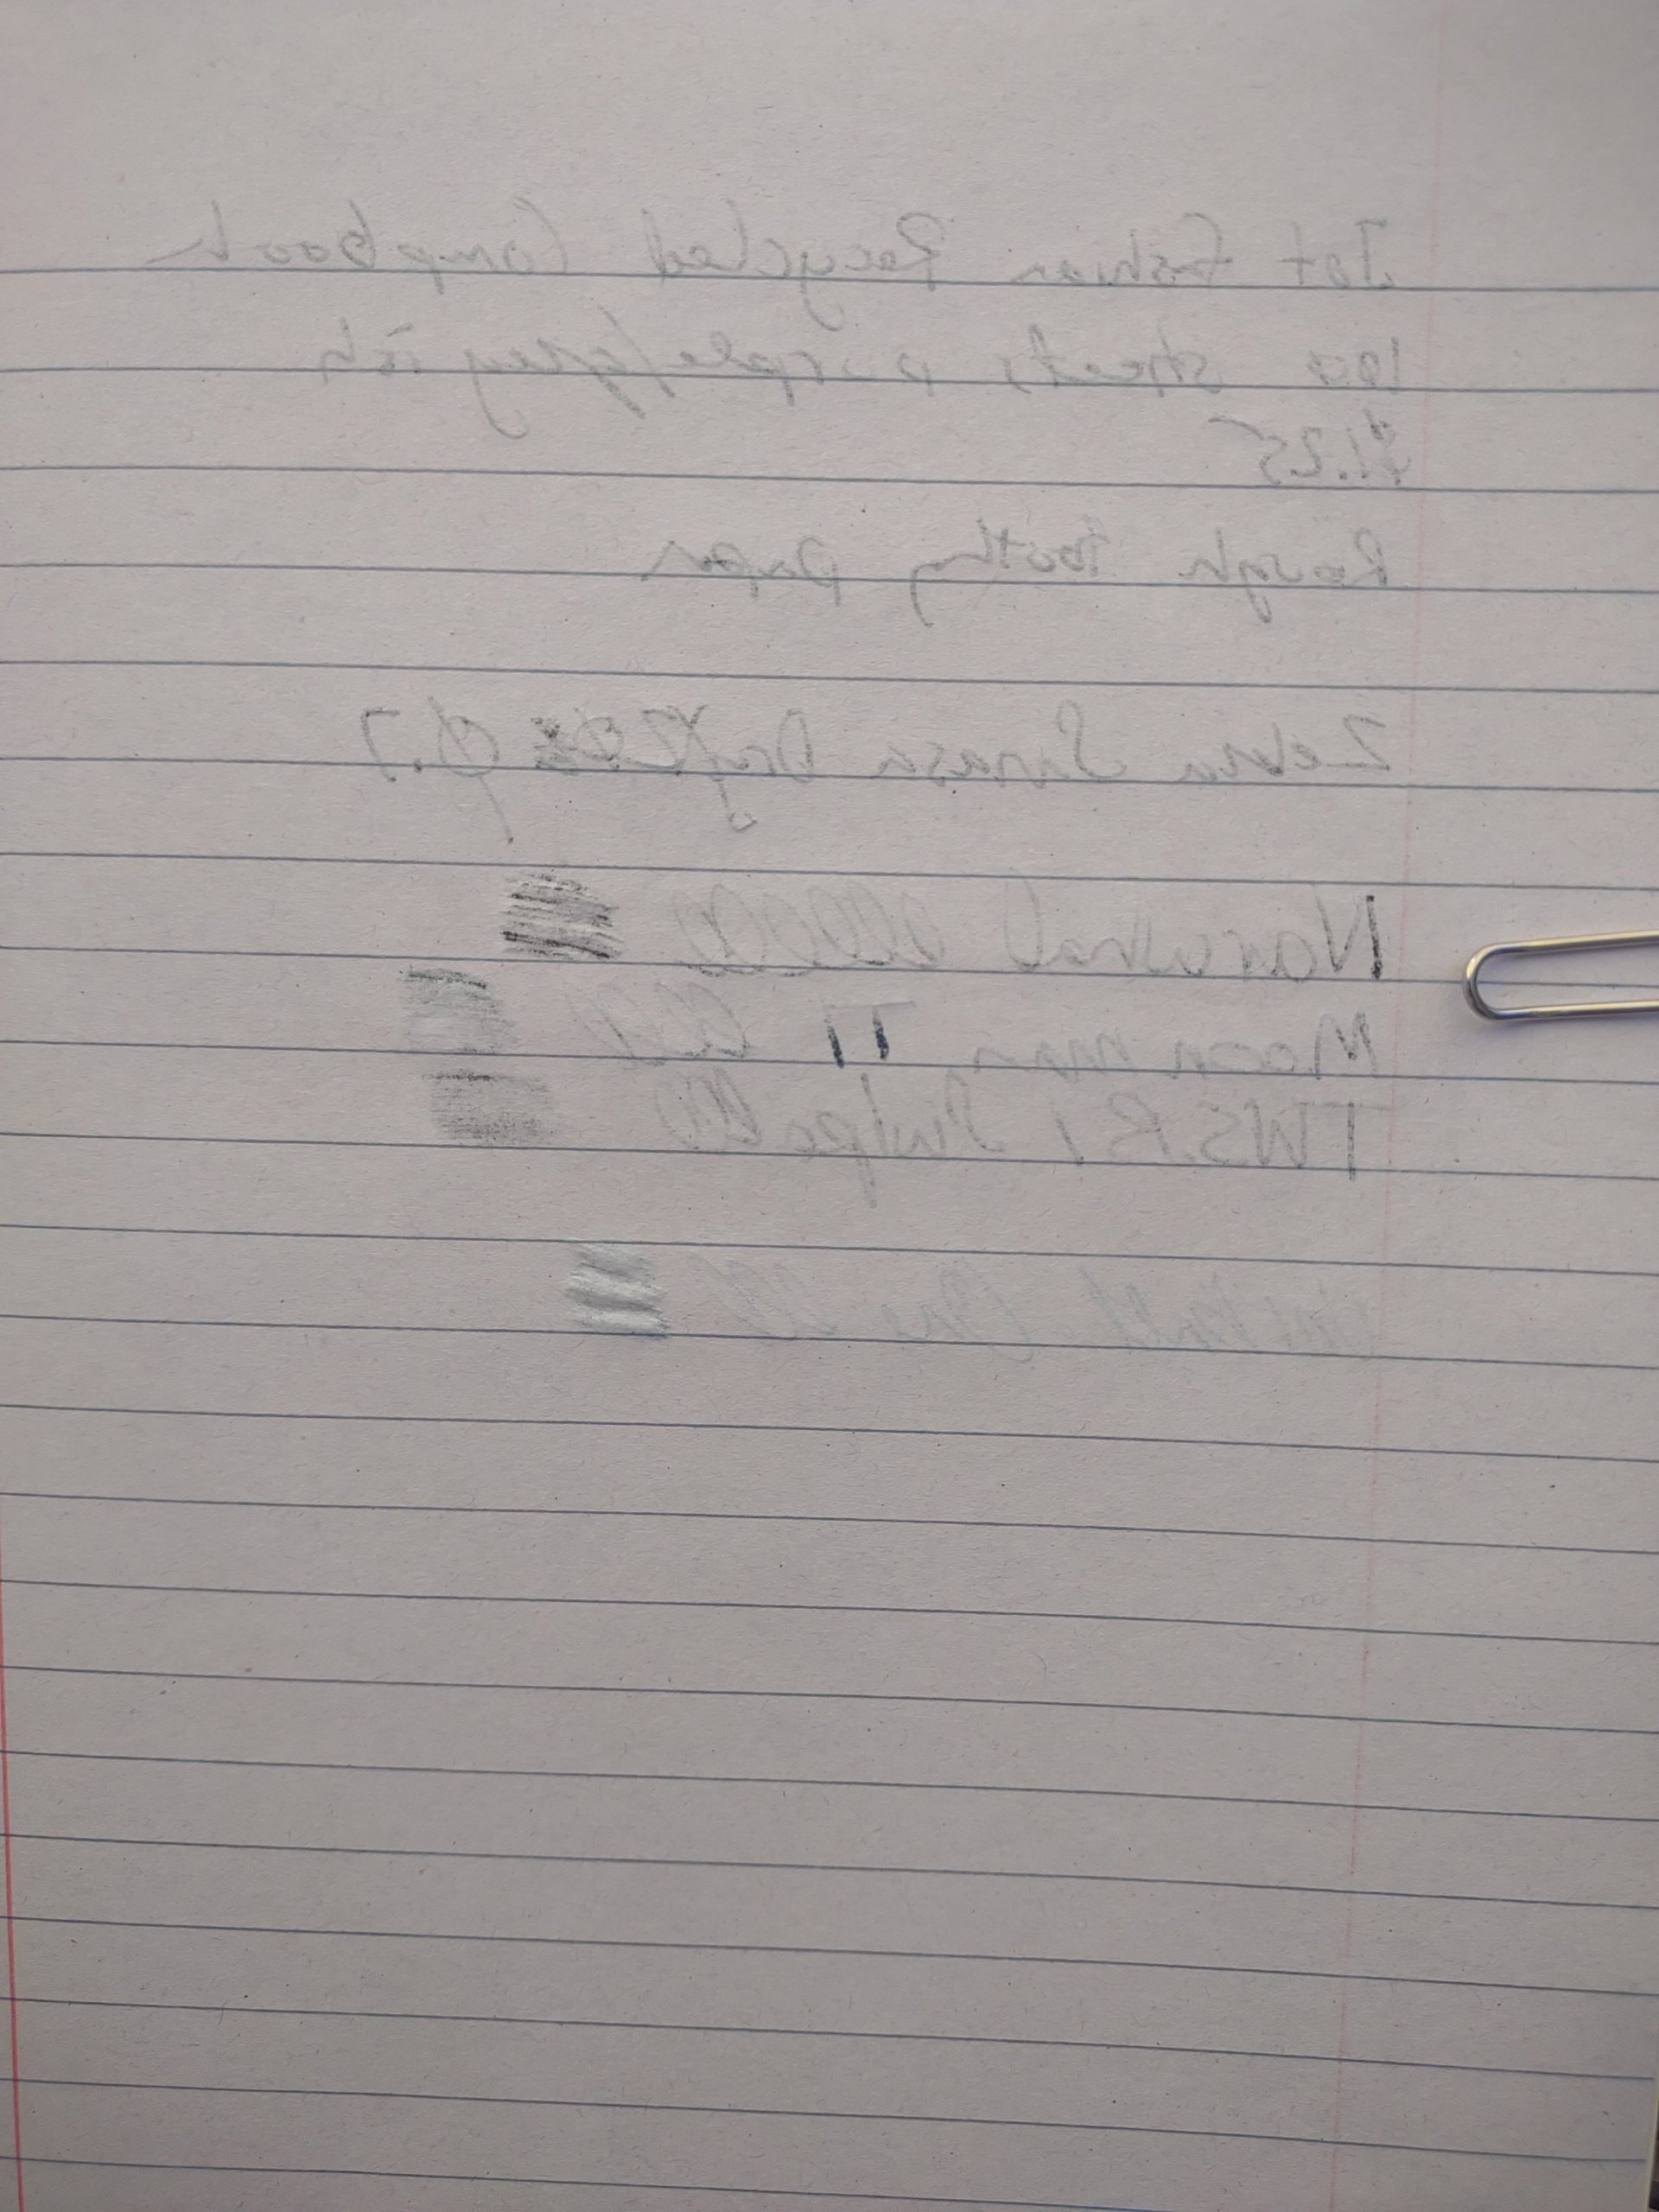 Jot Fashion Recycled Compbook
100 sheets purple/greyish
$1.25
Rough toothy paper
Zebra Sarasa 0.7
Narwhal
Moon man T1
TWSBI Swipe